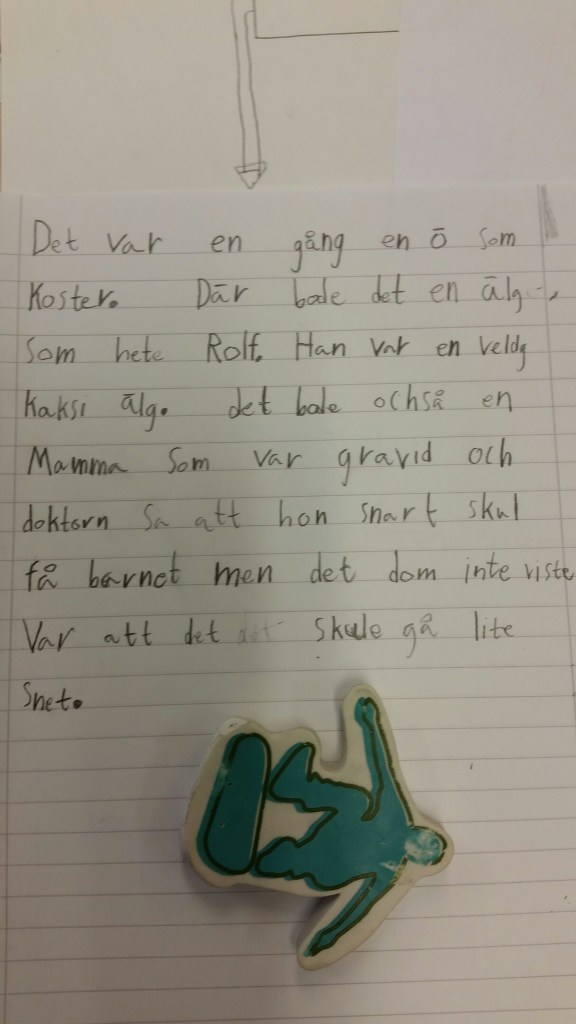 Det var en gång en ö som
Koster. Där bode det en älg,
som hete Rolf. Han var en veldg
kaksi älg. det bode ochså en
Mamma som var gravid och
doktorn sa att hon snart skul
få barnet men det dom inte viste
var att det skule gå lite
snet.